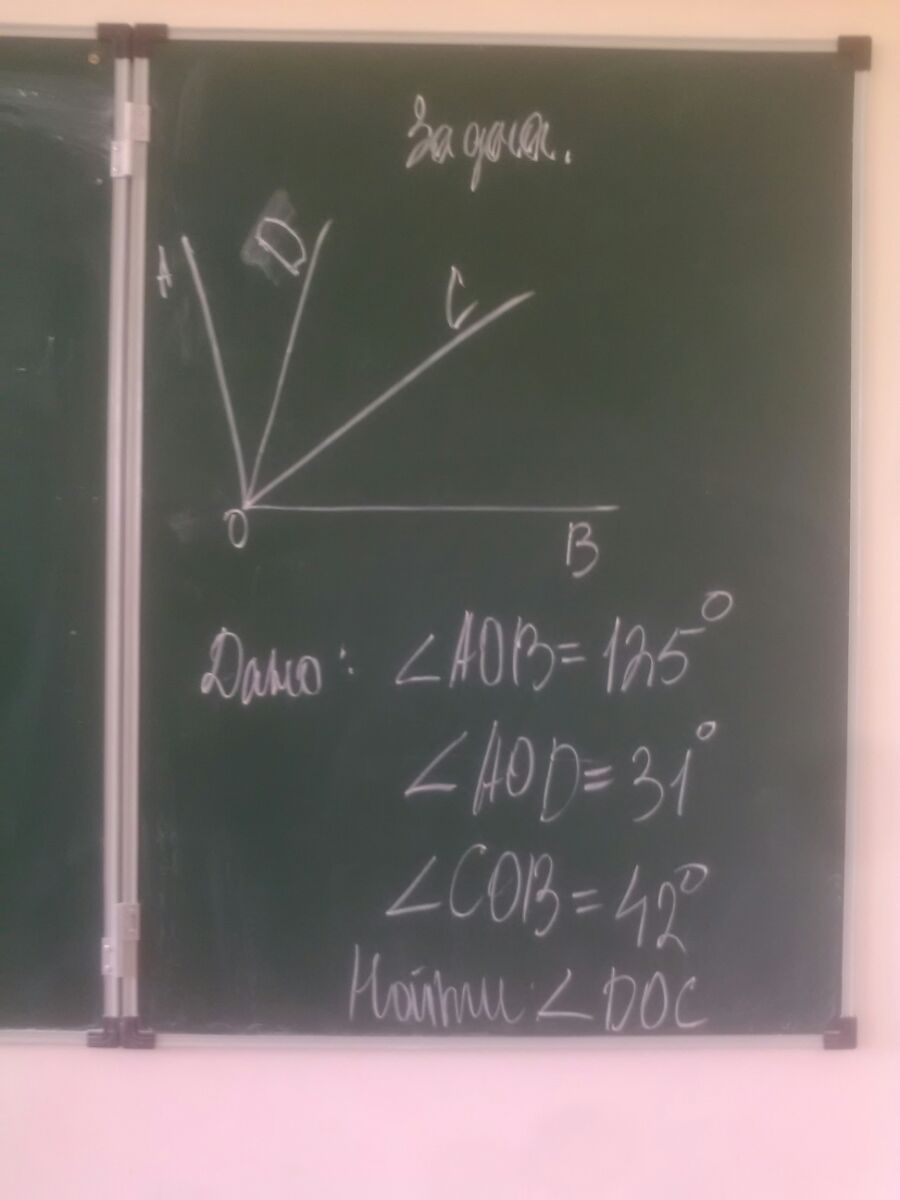 Задача.
A
D
C
O
B
Дано: ∠AOB=125°
∠AOD=31°
∠COB=42°
Найти: ∠DOC